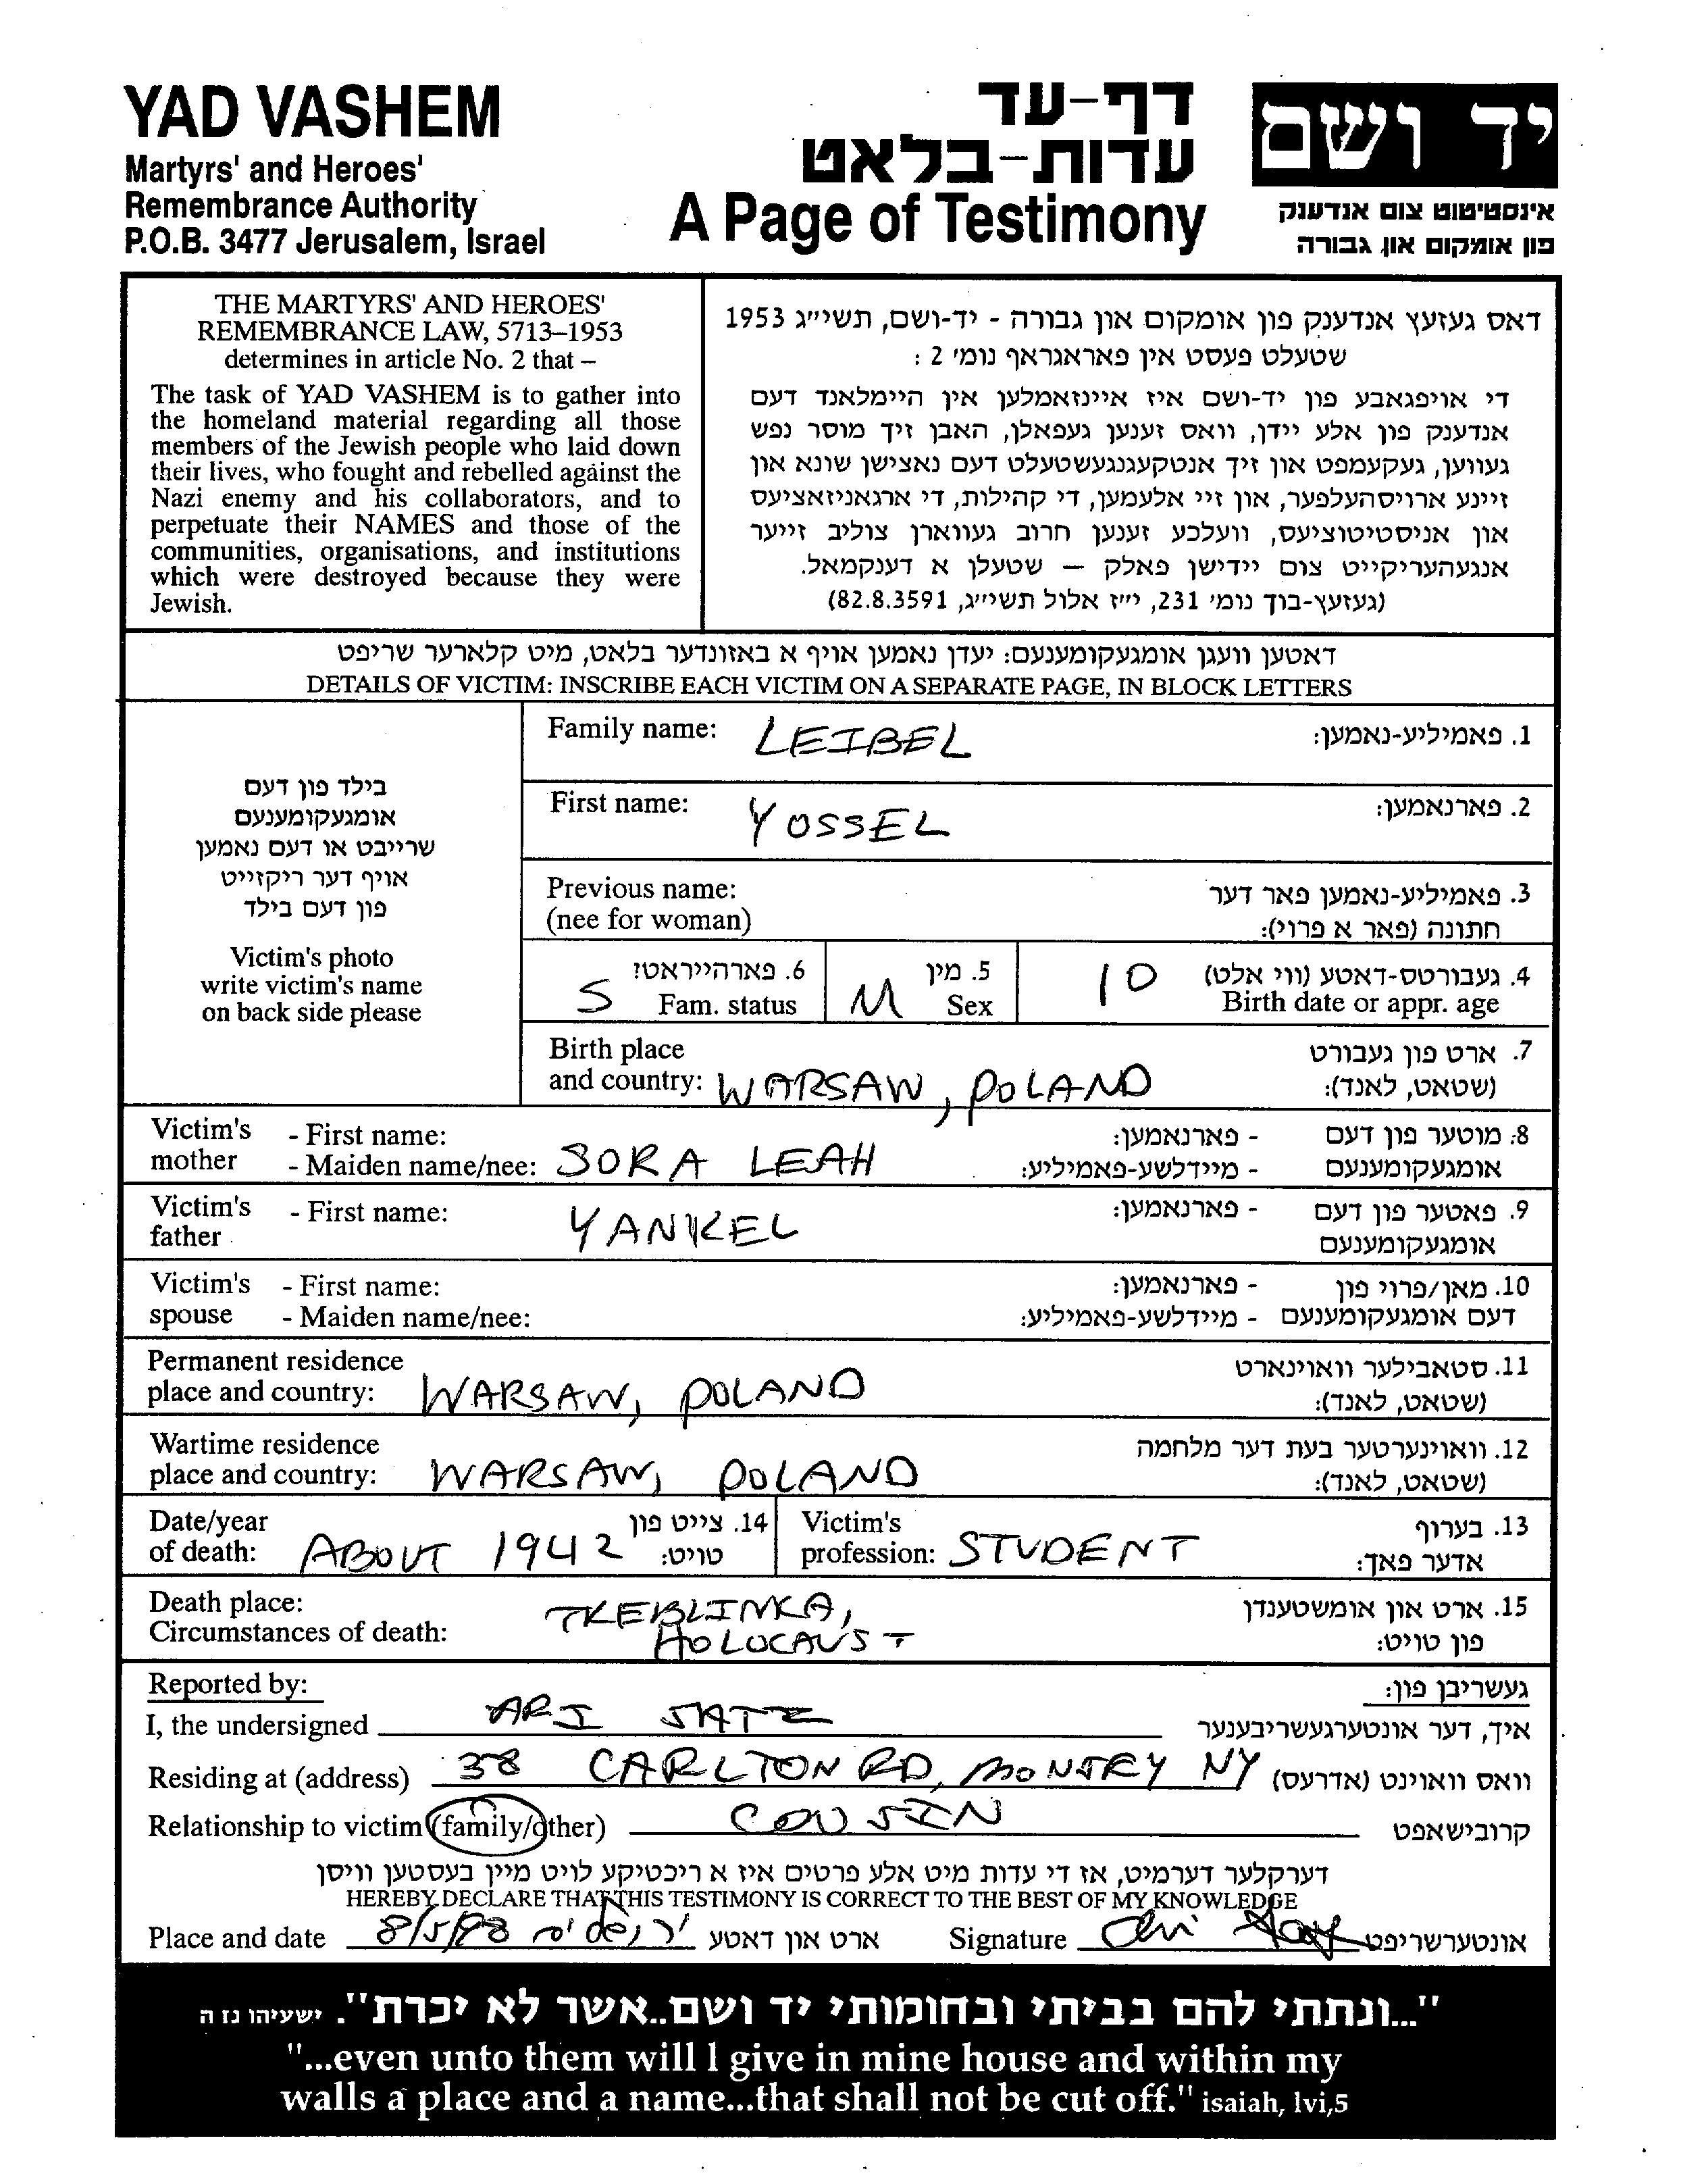 YAD VASHEM
Martyrs' and Heroes'
Remembrance Authority
P.O.B. 3477 Jerusalem, Israel
דף-עד
עדות-בלאט
A Page of Testimony
יד ושם
אינסטיטוט צום אנדענק
פון אומקום און גבורה
THE MARTYRS' AND HEROES'
REMEMBRANCE LAW, 5713–1953
determines in article No. 2 that –
The task of YAD VASHEM is to gather into
the homeland material regarding all those
members of the Jewish people who laid down
their lives, who fought and rebelled against the
Nazi enemy and his collaborators, and to
perpetuate their NAMES and those of the
communities, organisations, and institutions
which were destroyed because they were
Jewish.
דאס געזעץ אנדענק פון אומקום און גבורה - יד-ושם, תשי״ג 1953
שטעלט פעסט אין פאראגראף נומ׳ 2 :
די אויפגאבע פון יד-ושם איז איינזאמלען אין היימלאנד דעם
אנדענק פון אלע יידן, וואס זענען געפאלן, האבן זיך מוסר נפש
געווען, געקעמפט און זיך אנטקעגנגעשטעלט דעם נאצישן שונא און
זיינע ארויסהעלפער, און זיי אלעמען, די קהילות, די ארגאניזאציעס
און אניסטיטוציעס, וועלכע זענען חרוב געווארן צוליב זייער
אנגעהעריקייט צום יידישן פאלק – שטעלן א דענקמאל.
(געזעץ-בוך נומ׳ 231, י״ז אלול תשי״ג, 82.8.3591)
דאטען וועגן אומגעקומענעם: יעדן נאמען אויף א באזונדער בלאט, מיט קלארער שריפט
DETAILS OF VICTIM: INSCRIBE EACH VICTIM ON A SEPARATE PAGE, IN BLOCK LETTERS
בילד פון דעם
אומגעקומענעם
שרייבט או דעם נאמען
אויף דער ריקזייט
פון דעם בילד
Victim's photo
write victim's name
on back side please
Family name: LEIBEL 1. פאמיליע-נאמען:
First name: YOSSEL 2. פארנאמען:
Previous name: 3. פאמיליע-נאמען פאר דער
(nee for woman) חתונה (פאר א פרוי):
6. פארהייראט? 5. מין 4. געבורטס-דאטע (ווי אלט)
S Fam. status M Sex 10 Birth date or appr. age
Birth place 7. ארט פון געבורט
and country: WARSAW, POLAND (שטאט, לאנד):
Victim's - First name: - פארנאמען: 8. מוטער פון דעם
mother - Maiden name/nee: SORA LEAH - מיידלשע-פאמיליע: אומגעקומענעם
Victim's - First name: YANKEL - פארנאמען: 9. פאטער פון דעם
father אומגעקומענעם
Victim's - First name: - פארנאמען: 10. מאן/פרוי פון
spouse - Maiden name/nee: - מיידלשע-פאמיליע: דעם אומגעקומענעם
Permanent residence 11. סטאבילער וואוינארט
place and country: WARSAW, POLAND (שטאט, לאנד):
Wartime residence 12. וואוינערטער בעת דער מלחמה
place and country: WARSAW, POLAND (שטאט, לאנד):
Date/year 14. צייט פון Victim's 13. בערוף
of death: ABOUT 1942 טויט: profession: STUDENT אדער פאך:
Death place: TREBLINKA, 15. ארט און אומשטענדן
Circumstances of death: HOLOCAUST פון טויט:
Reported by: געשריבן פון:
I, the undersigned ARI SATZ איך, דער אונטערגעשריבענער
Residing at (address) 38 CARLTON RD, MONSEY NY וואס וואוינט (אדרעס)
Relationship to victim (family/other) COUSIN קרובישאפט
דערקלער דערמיט, אז די עדות מיט אלע פרטים איז א ריכטיקע לויט מיין בעסטען וויסן
HEREBY DECLARE THAT THIS TESTIMONY IS CORRECT TO THE BEST OF MY KNOWLEDGE
Place and date 8/5/98 ירושלים ארט און דאטע Signature אונטערשריפט
"...ונתתי להם בביתי ובחומותי יד ושם..אשר לא יכרת". ישעיהו נז ה
"...even unto them will I give in mine house and within my
walls a place and a name...that shall not be cut off." isaiah, lvi,5